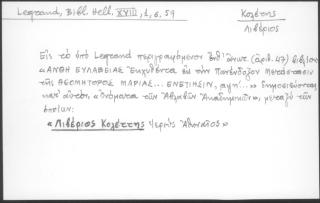 Legrand, Bibl. Hell. XVIII, 1, σ. 59
Κολέττης
Λιβέριος
Εἰς τὸ ὑπὸ Legrand περιγραφόμενον ἐνθ' ἀνωτ. (ἀριθ. 47) βιβλίον
«ΑΝΘΗ ΕΥΛΑΒΕΙΑΣ ἐκχυθέντα εἰς τὴν Πανένδοξον Μετάστασιν
τῆς ΘΕΟΜΗΤΟΡΟΣ ΜΑΡΙΑΣ... ΕΝΕΤΙΗΣΙΝ, αψη'...» δημοσιεύονται
κατ' αὐτόν, «ὀνόματα τῶν Ἀλφαβ Ἀκαδημαικῶν», μεταξὺ τῶν
ὁποίων:
«Λιβέριος Κολέττης Ἱερεὺς Ἀθηναῖος»